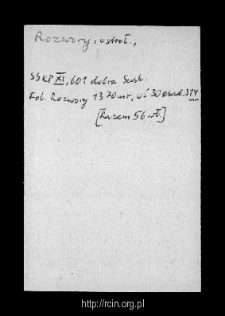 Rozwory, ostroł.,
SSKP XI, 601 dobra Susk.
Fol. Rozwory 1370 mr, oś 30 osad, 314
mr
[Razem 56 wł.]
© http://rcin.org.pl